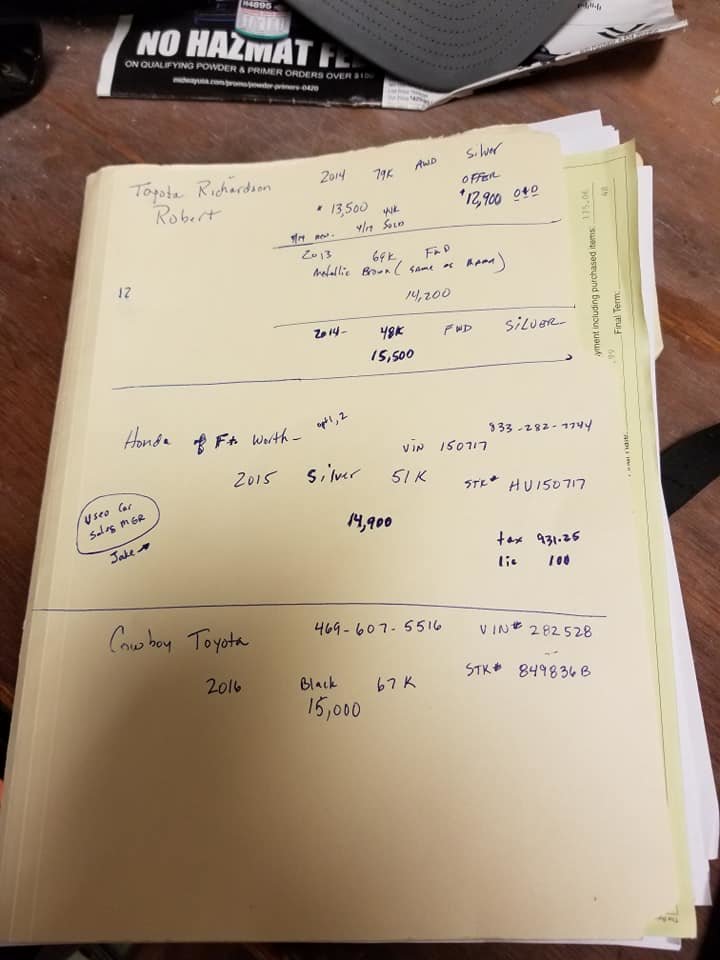 H4895
NO HAZMAT
ON QUALIFYING POWDER & PRIMER ORDERS OVER $150
midwayusa.com/promo/powder-primers-0420
Toyota Richardson
Robert
2014 79K AWD Silver
OFFER
* 13,500 $12,900 O&O
4/17 SOLD
2013 69K FWD
Metallic Brown (same as
14,200
12
2014- 48K FWD SILVER
15,500
yment including purchased items: 175.06
Final Term: 48
Honda of Ft Worth- opt 1,2
833-282-7744
VIN 150717
2015 Silver 51K
STK# HU150717
Used Car
Sales MGR
Jake
14,900
tax 931.25
lic 100
Cowboy Toyota
469-607-5516
VIN# 282528
STK# 849836B
2016 Black 67K
15,000